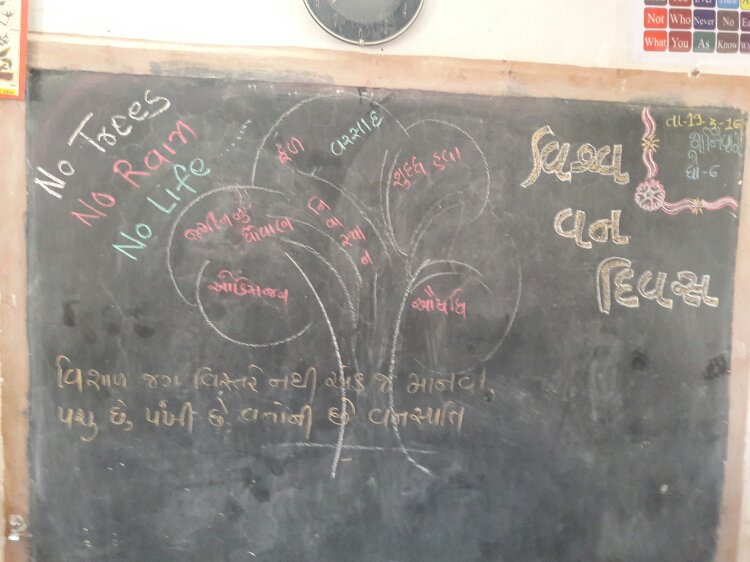 Not Who Never No
What You As Know
No Trees
No Rain
No Life ......
ફળ
વરસાદ
શુદ્ધ હવા
જમીનનું
ધોવાણ
નિવાસસ્થાન
ઓક્સિજન
ઔષધિ
વિશ્વ
વન
દિવસ
ધો-6
વિશાળ જગ વિસ્તરે નથી એક જ માનવી,
પશુ છે, પંખી છે, વનોની છે વનસ્પતિ